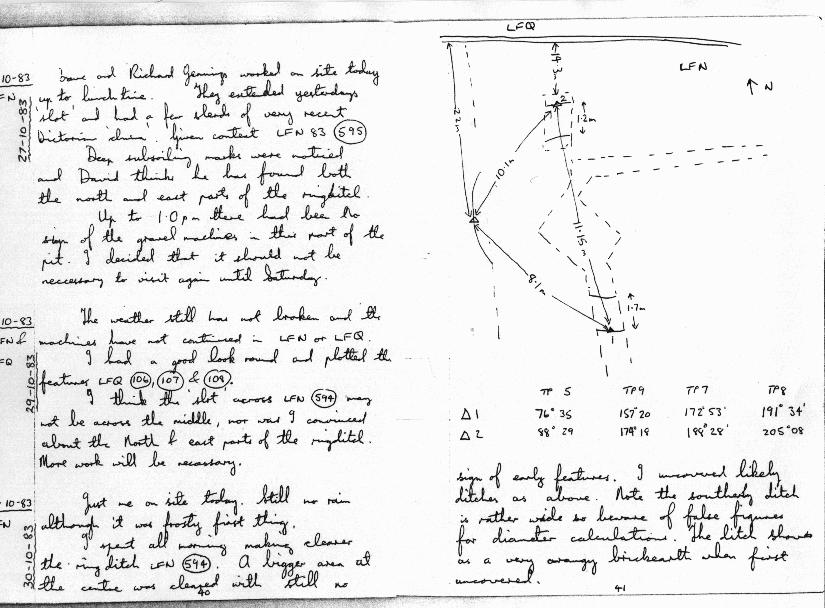 10-83
FN
27-10-83
Dave and Richard Jennings worked on site today
up to lunch time. They extended yesterdays
'slot' and had a few sherds of very recent
Victorian china. Given context LFN 83 (595)
Deep subsoiling marks were noticed
and David thinks he has found both
the north and east parts of the ringditch.
Up to 1.0 pm there had been no
sign of the gravel machines in this part of the
pit. I decided that it should not be
neccessary to visit again until Saturday.
10-83
FN &
FQ
29-10-83
The weather still has not broken and the
machines have not continued in LFN or LFQ.
I had a good look round and plotted the
features LFQ (106), (107) & (108).
I think the 'slot' across LFN (594) may
not be across the middle, nor was I convinced
about the North & east parts of the ringditch.
More work will be necessary.
10-83
FN
30-10-83
Just me on site today. Still no rain
although it was frosty first thing.
I spent all morning making clearer
the ring ditch LFN (594). A bigger area at
the centre was cleared with still no
40
LFQ
LFN
N
14.3m
22m
2
1.2m
10.1m
11.15m
8.1m
1
1.7m
TP 5 TP9 TP7 TP8
Δ 1 76° 35 157° 20 172° 53' 191° 34'
Δ 2 88° 29 174° 18 188° 28' 205° 08
sign of early features. I uncovered likely
ditches as above. Note the southerly ditch
is rather wide so beware of false figures
for diameter calculations. The ditch shows
as a very orangy brickearth when first
uncovered.
41